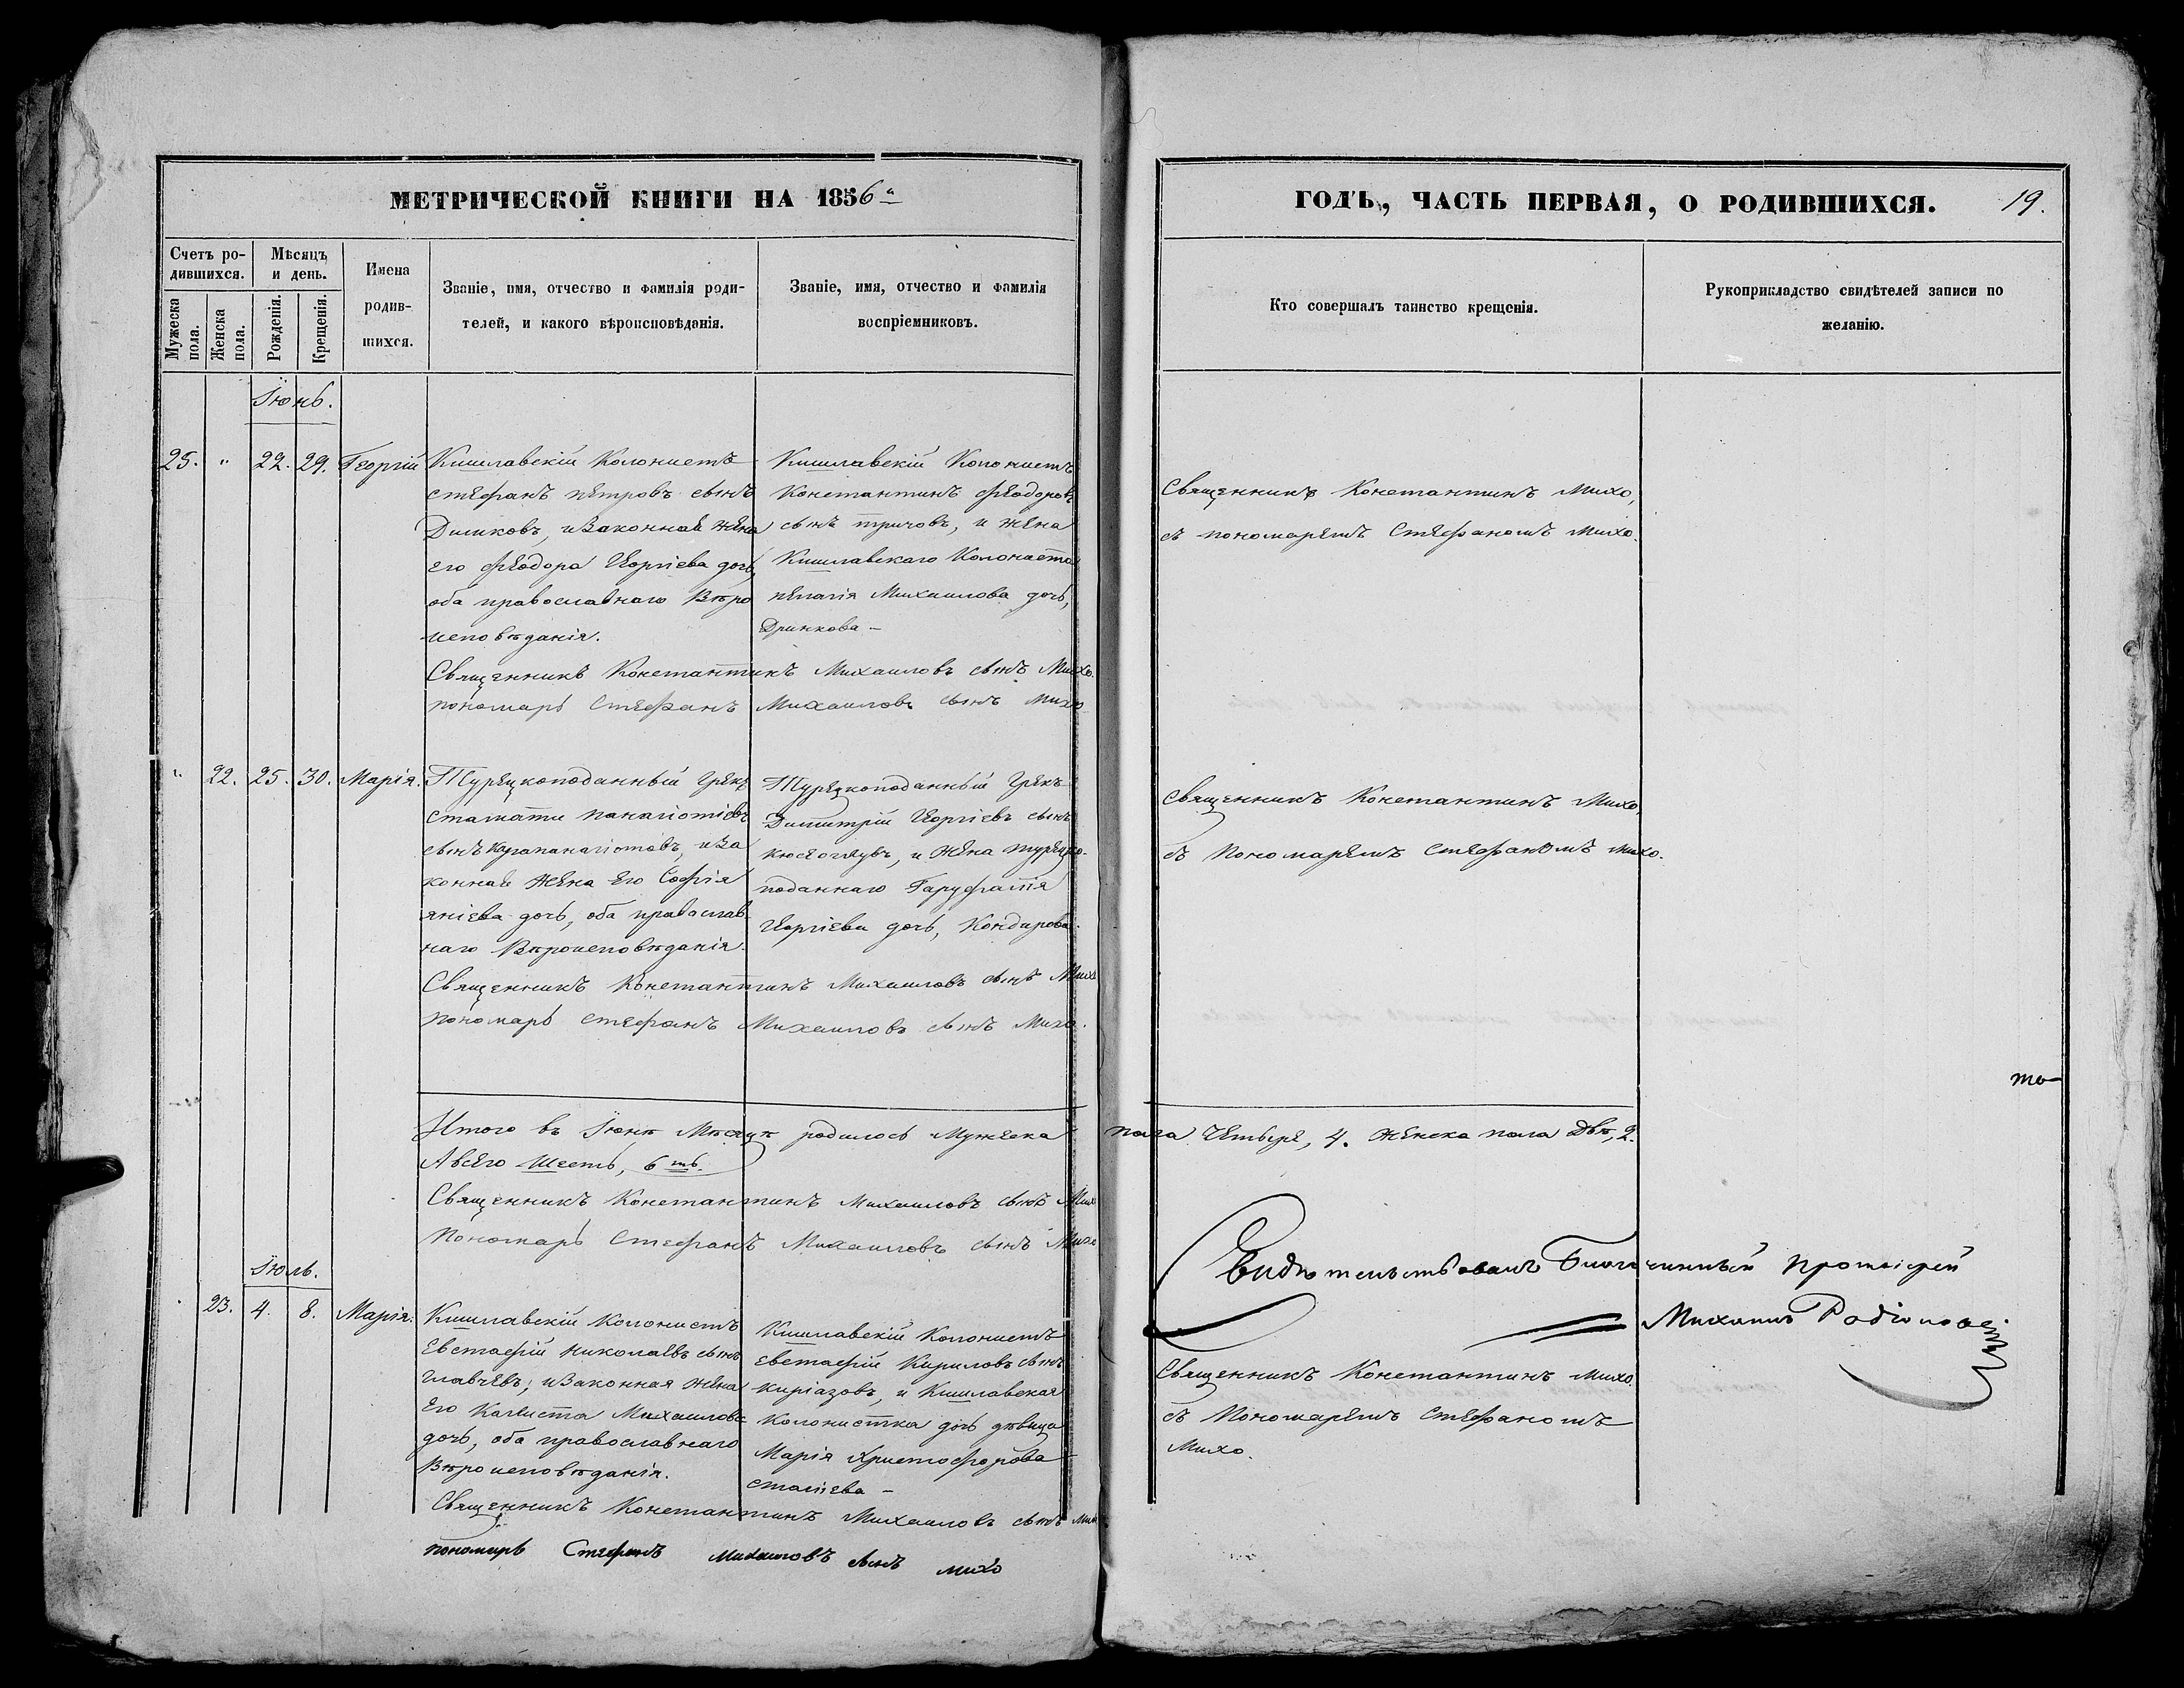 МЕТРИЧЕСКОЙ КНИГИ НА 1856 а
Счетъ ро-
дившихся.
Мужеска
пола.
Женска
пола.
Мѣсяцъ
и день.
Рожденія.
Крещенія.
Имена
родив-
шихся.
Званіе, имя, отчество и фамилія роди-
телей, и какого вѣроисповѣданія.
Званіе, имя, отчество и фамилія
воспріемниковъ.
Іюнь.
25. " 22. 29. Георгій
Кишлавскій Колонистъ
Стефанъ Петровъ сынъ
Димковъ, и Законная жена
его Феодора Георгіева дочь,
оба православнаго Вѣро
исповѣданія.
Кишлавскій Колонистъ
Константинъ Феодоровъ
сынъ тричовъ, и жена
Кишлавскаго Колониста
пелагія Михаилова дочь,
Дринкова –
Священникъ Константинъ Михаиловъ сынъ Михо.
пономарь Стефанъ Михаиловъ сынъ Михо
" 22. 25. 30. Марія.
Турецкоподанный Грекъ
Стамати панагіотіевъ
сынъ Карапанагіотовъ, и За
конная жена его Софія
яніева дочь, оба православ
наго Вѣроисповѣданія.
Турецкоподанный Грекъ
Димитрій Георгіевъ сынъ
, и жена турецко-
поданнаго Гаруфалія
Георгіева дочь, Кондарова.
Священникъ Константинъ Михаиловъ сынъ Михо
пономарь Стефанъ Михаиловъ сынъ Михо.
Итого въ Іюнѣ Мѣсяцѣ родилось Мужеска
А всего Шесть, 6 ть.
Священникъ Константинъ Михаиловъ сынъ Михо
Пономарь Стефанъ Михаиловъ сынъ Михо
Іюль.
23. 4. 8. Марія.
Кишлавскій Колонистъ
Евстафій Николаевъ сынъ
Главчевъ; и Законная жена
его Калиста Михаилова
дочь, оба православнаго
Вѣроисповѣданія.
Кишлавскій Колонистъ
Евстафій Кириловъ сынъ
киріазовъ, и Кишлавская
Колонистка дочь дѣвица
Марія Христофорова
сталіева –
Священникъ Константинъ Михаиловъ сынъ Михо
пономарь Стефанъ Михаиловъ сынъ Михо
ГОДЪ, ЧАСТЬ ПЕРВАЯ, О РОДИВШИХСЯ. 19.
Кто совершалъ таинство крещенія.
Рукоприкладство свидѣтелей записи по
желанію.
Священникъ Константинъ Михо,
съ пономаремъ Стефаномъ Михо.
Священникъ Константинъ Михо,
съ Пономаремъ Стефаномъ Михо.
то
пола Четыре, 4. Женска пола Двѣ, 2.
Свидѣтельствовалъ Благочинный Протоіерей
Михаилъ Родіоновъ
Священникъ Константинъ Михо.
съ Пономаремъ Стефаномъ
Михо.